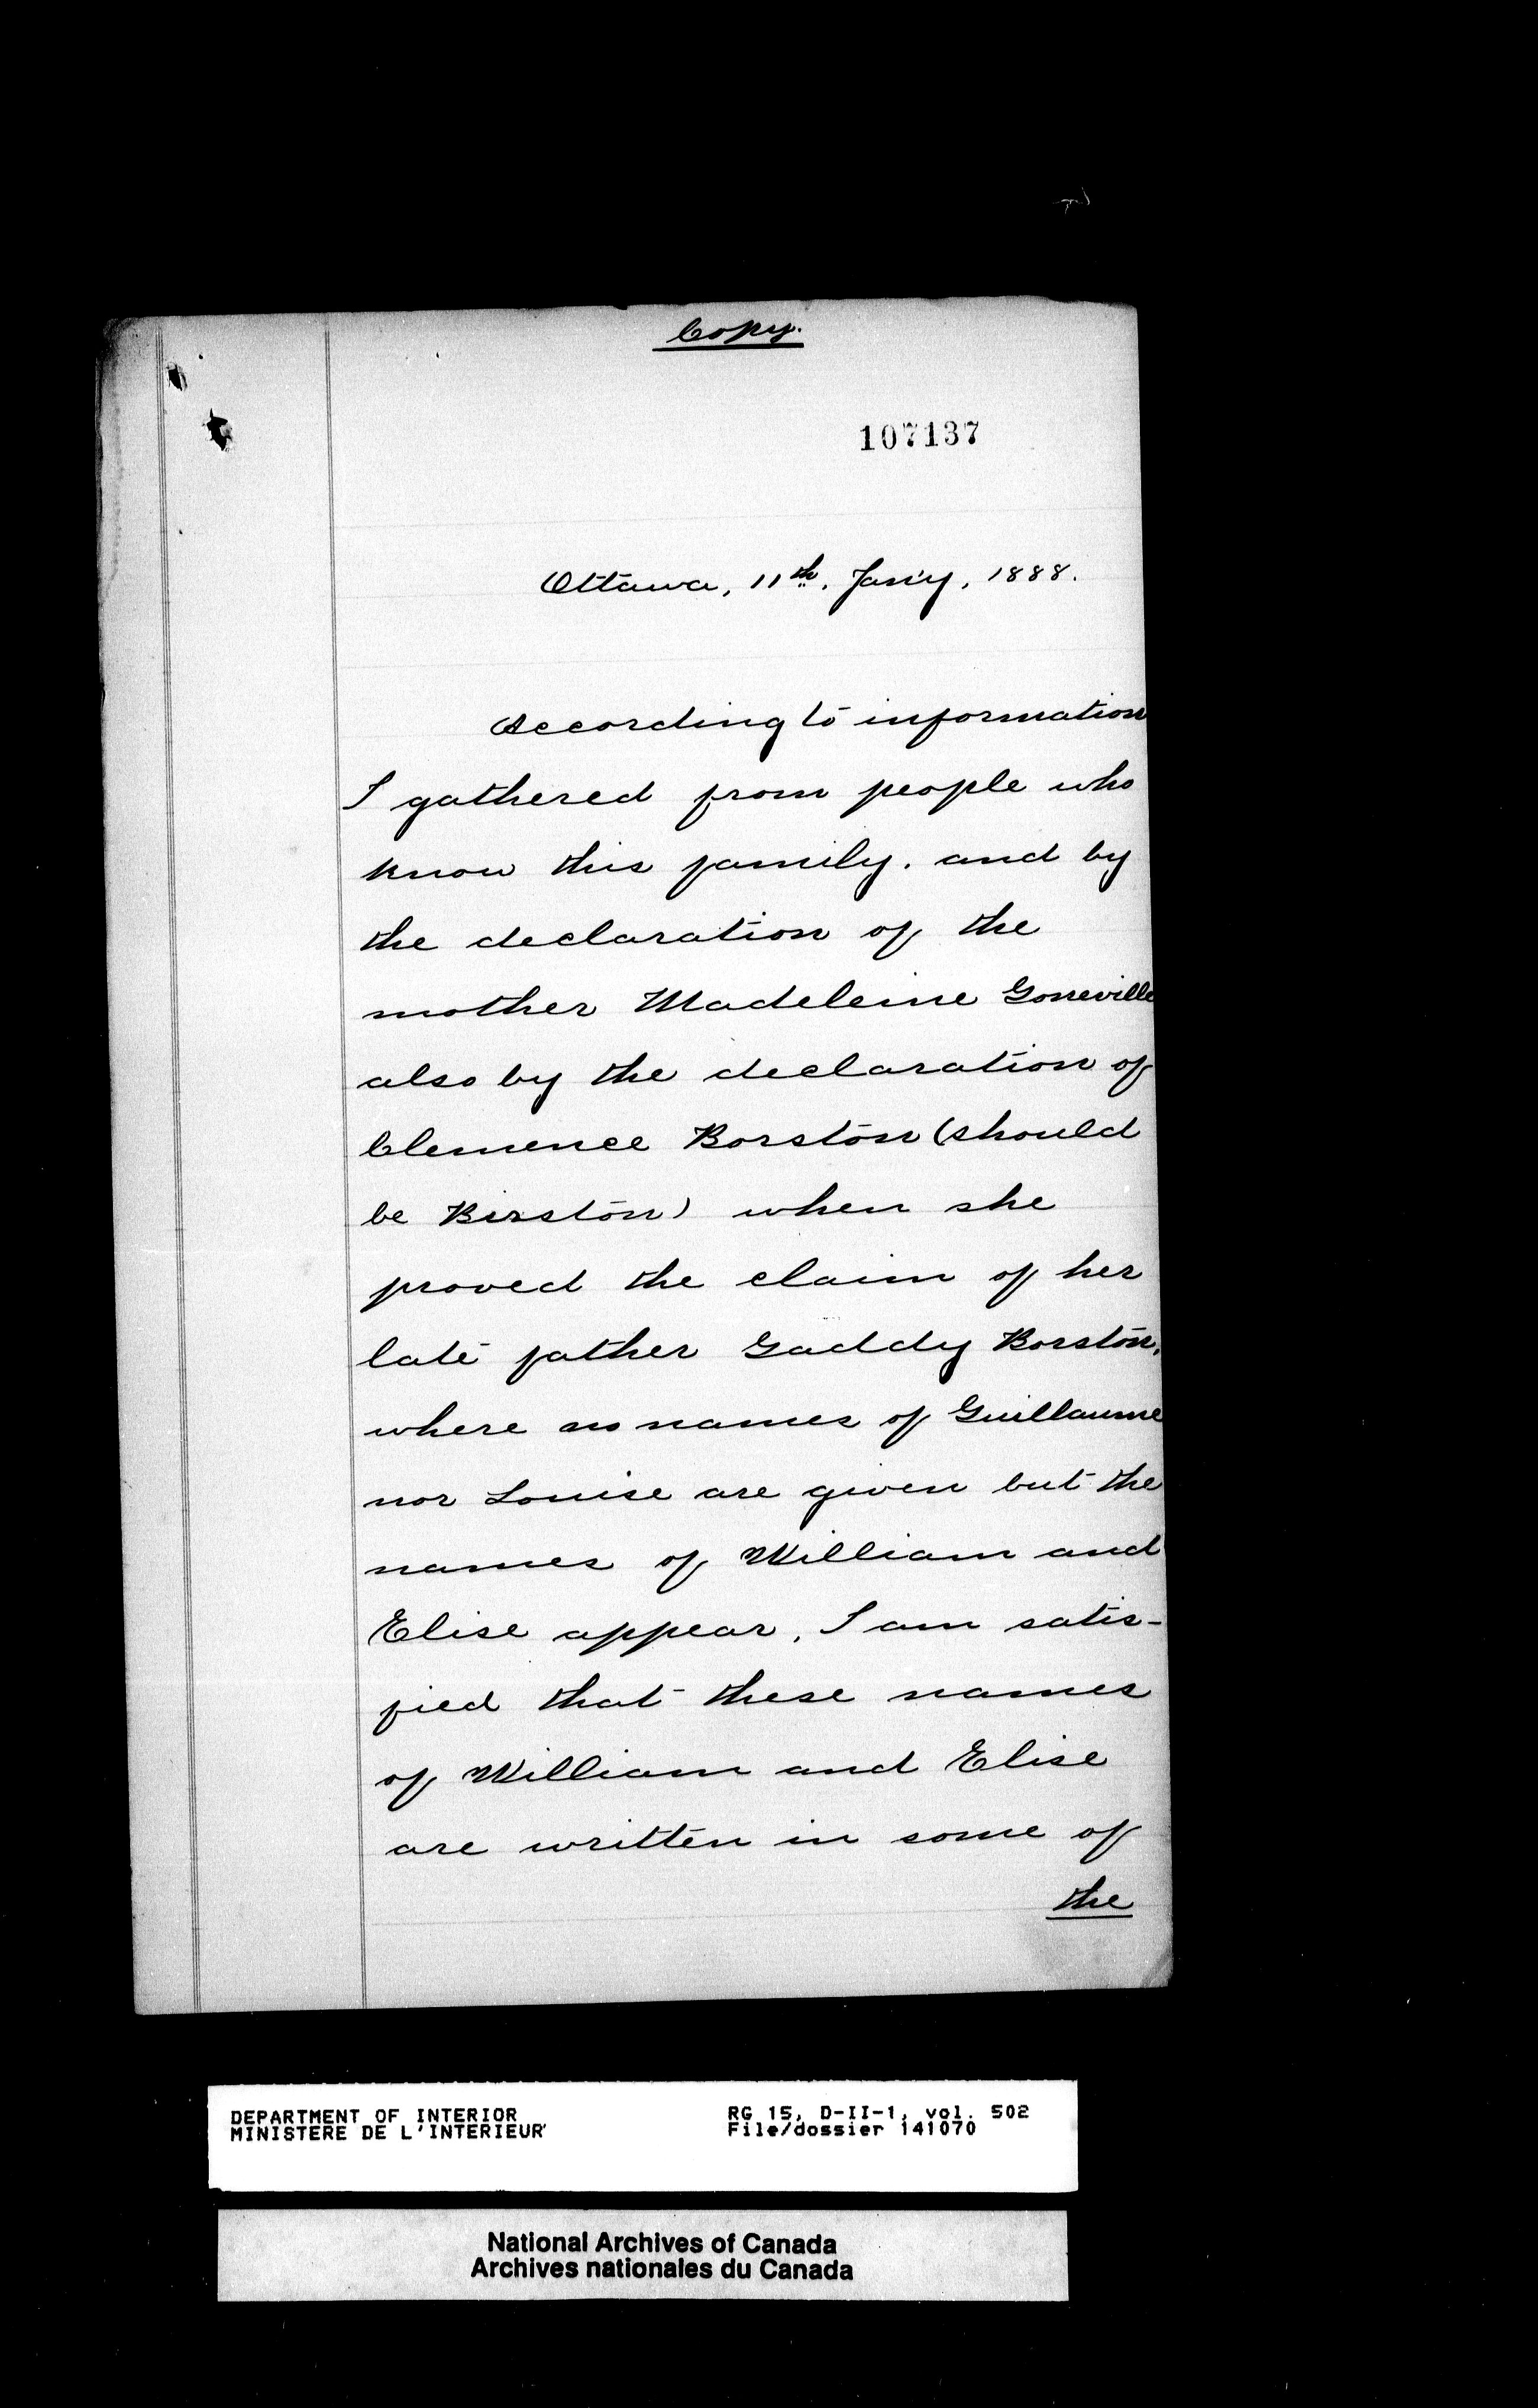 Copy.
107137
Ottawa, 11th. Jan'y, 1888.
According to information
I gathered from people who
know this family. and by
the declaration of the
mother Madeleine Gorneville
also by the declaration of
Clemence Borston (should
be Birston) when she
proved the claim of her
late father Gaddy Borston,
where no names of Guillaume
nor Louise are given but the
names of William and
Elise appear, I am satis-
fied that these names
of William and Elise
are written in some of
the
DEPARTMENT OF INTERIOR
MINISTERE DE L'INTERIEUR
RG 15, D-II-1, vol. 502
File/dossier 141070
National Archives of Canada
Archives nationales du Canada